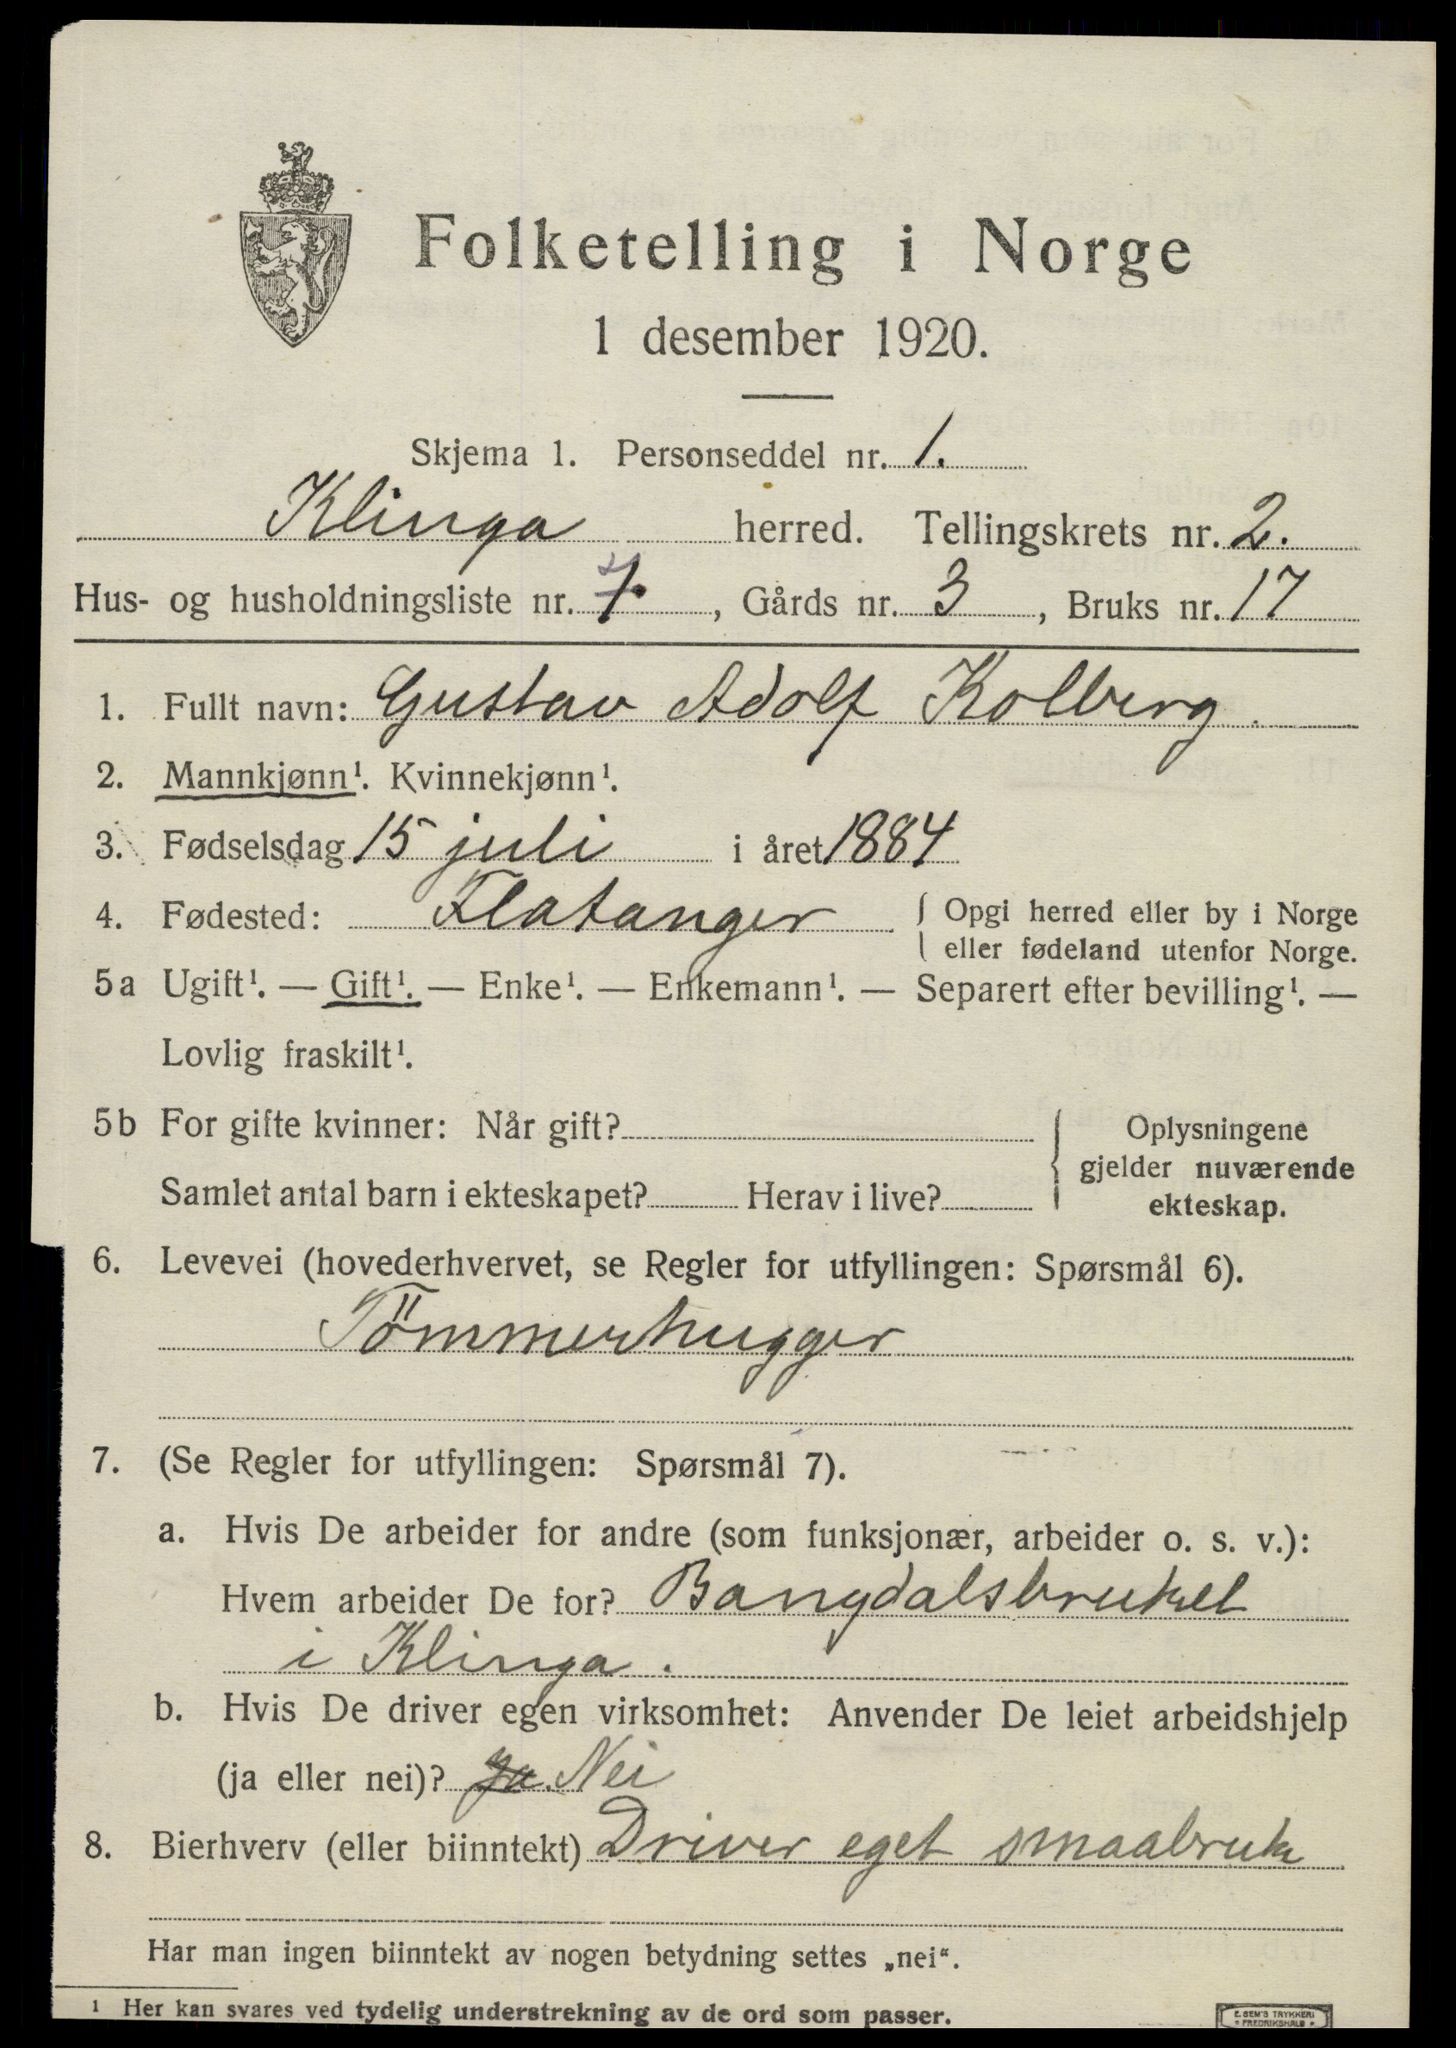 Folketelling i Norge
1 desember 1920.
Skjema 1. Personseddel nr. 1.
Klinga herred. Tellingskrets nr. 2.
Hus- og husholdningsliste nr. 7, Gårds nr. 3, Bruks nr. 17
1. Fullt navn: Gustav Adolf Kolberg.
2. Mannkjønn¹. Kvinnekjønn¹.
3. Fødselsdag 15 juli i året 1884
4. Fødested: Flatanger { Opgi herred eller by i Norge
eller fødeland utenfor Norge.
5a Ugift¹. — Gift¹. — Enke¹. — Enkemann¹. — Separert efter bevilling¹. —
Lovlig fraskilt¹.
5b For gifte kvinner: Når gift?
Samlet antal barn i ekteskapet? Herav i live?
Oplysningene
gjelder nuværende
ekteskap.
6. Levevei (hovederhvervet, se Regler for utfyllingen: Spørsmål 6).
Tömmerhugger
7. (Se Regler for utfyllingen: Spørsmål 7).
a. Hvis De arbeider for andre (som funksjonær, arbeider o. s. v.):
Hvem arbeider De for? Bangdalsbruket
i Klinga.
b. Hvis De driver egen virksomhet: Anvender De leiet arbeidshjelp
(ja eller nei)? Ja Nei
8. Bierhverv (eller biinntekt) Driver eget smaabruk
Har man ingen biinntekt av nogen betydning settes „nei“.
¹ Her kan svares ved tydelig understrekning av de ord som passer.
E. SEM'S TRYKKERI
FREDRIKSHALD